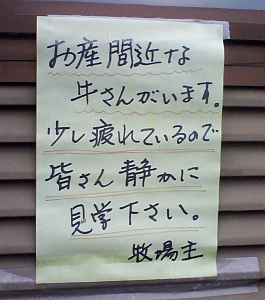 お産間近な
牛さんがいます。
少し疲れているので
皆さん静かに
見学下さい。
牧場主